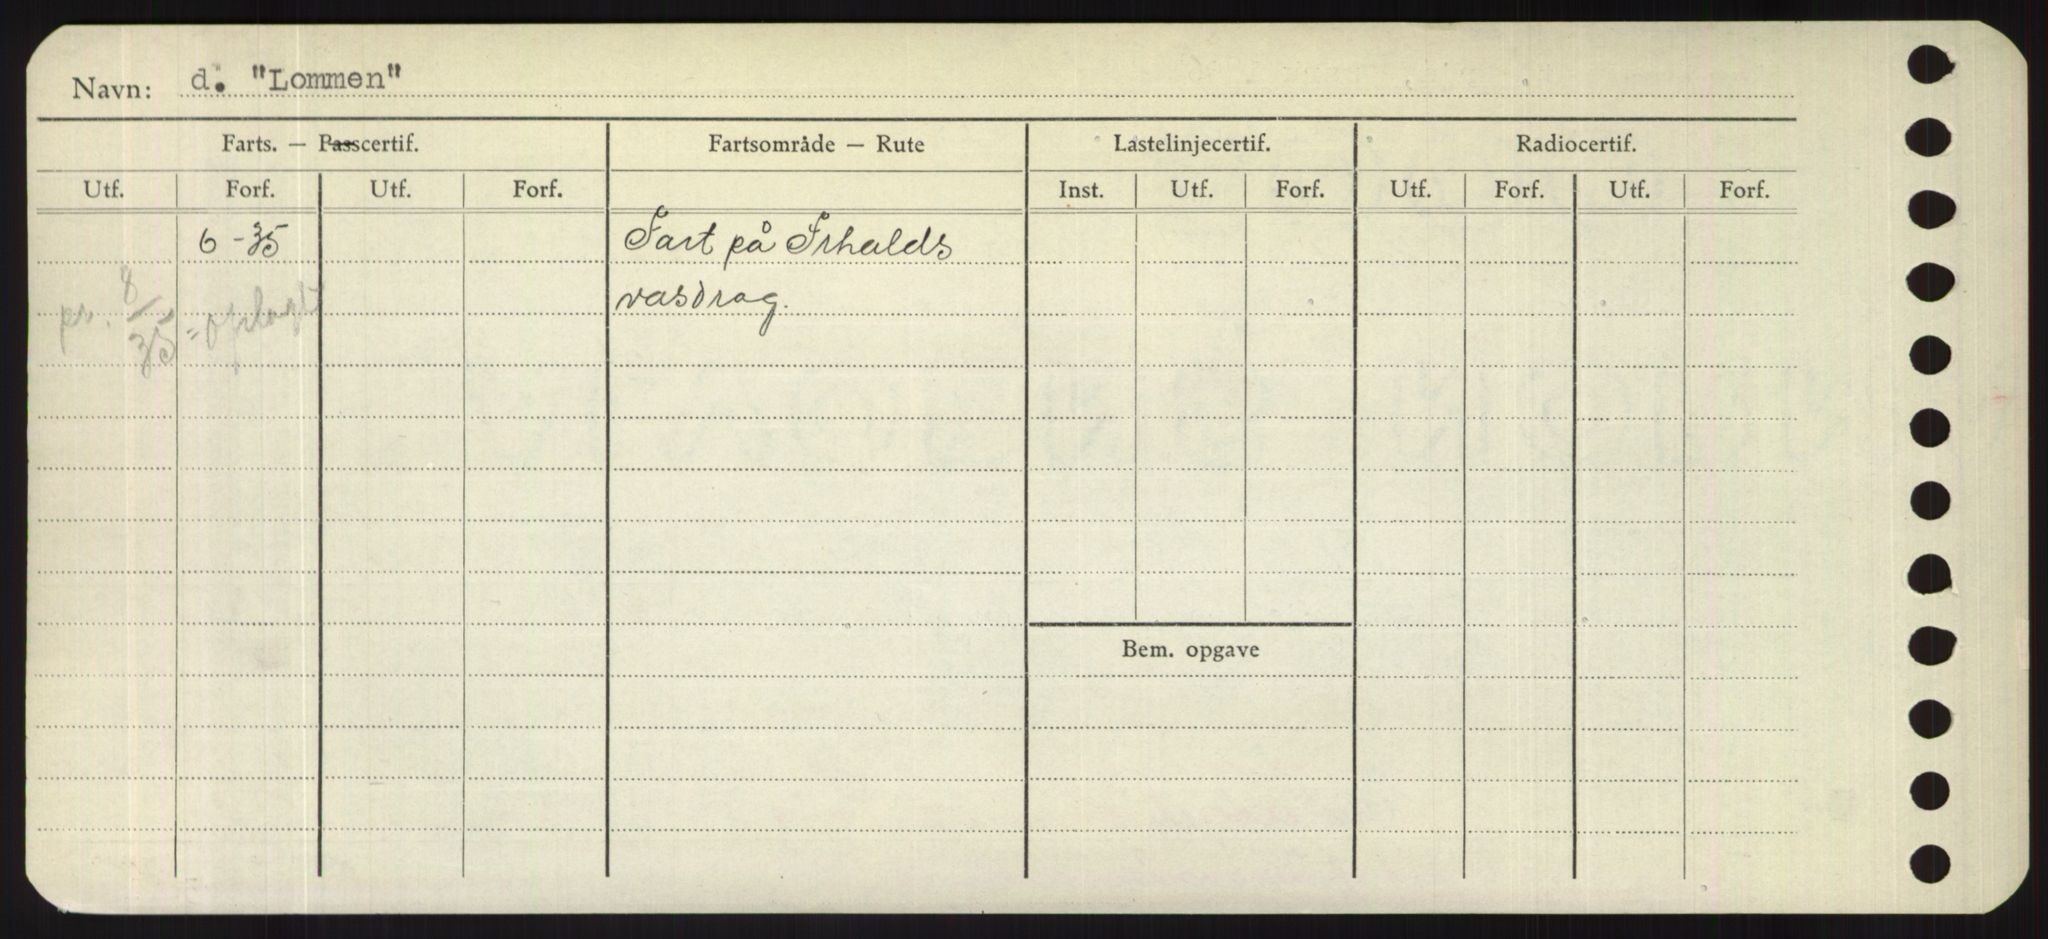 Navn: d. "Lommen"
Farts. — Passcertif. Fartsområde — Rute Lastelinjecertif. Radiocertif.
Utf. Forf. Utf. Forf. Inst. Utf. Forf. Utf. Forf. Utf. Forf.
6-35 Fart på Frhalds
vasdrag.
pr. 8/35 = oplagt
Bem. opgave